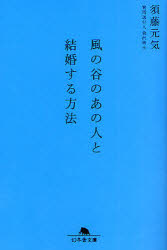 須藤元気
風の谷のあの人と
結婚する方法
幻冬舎文庫